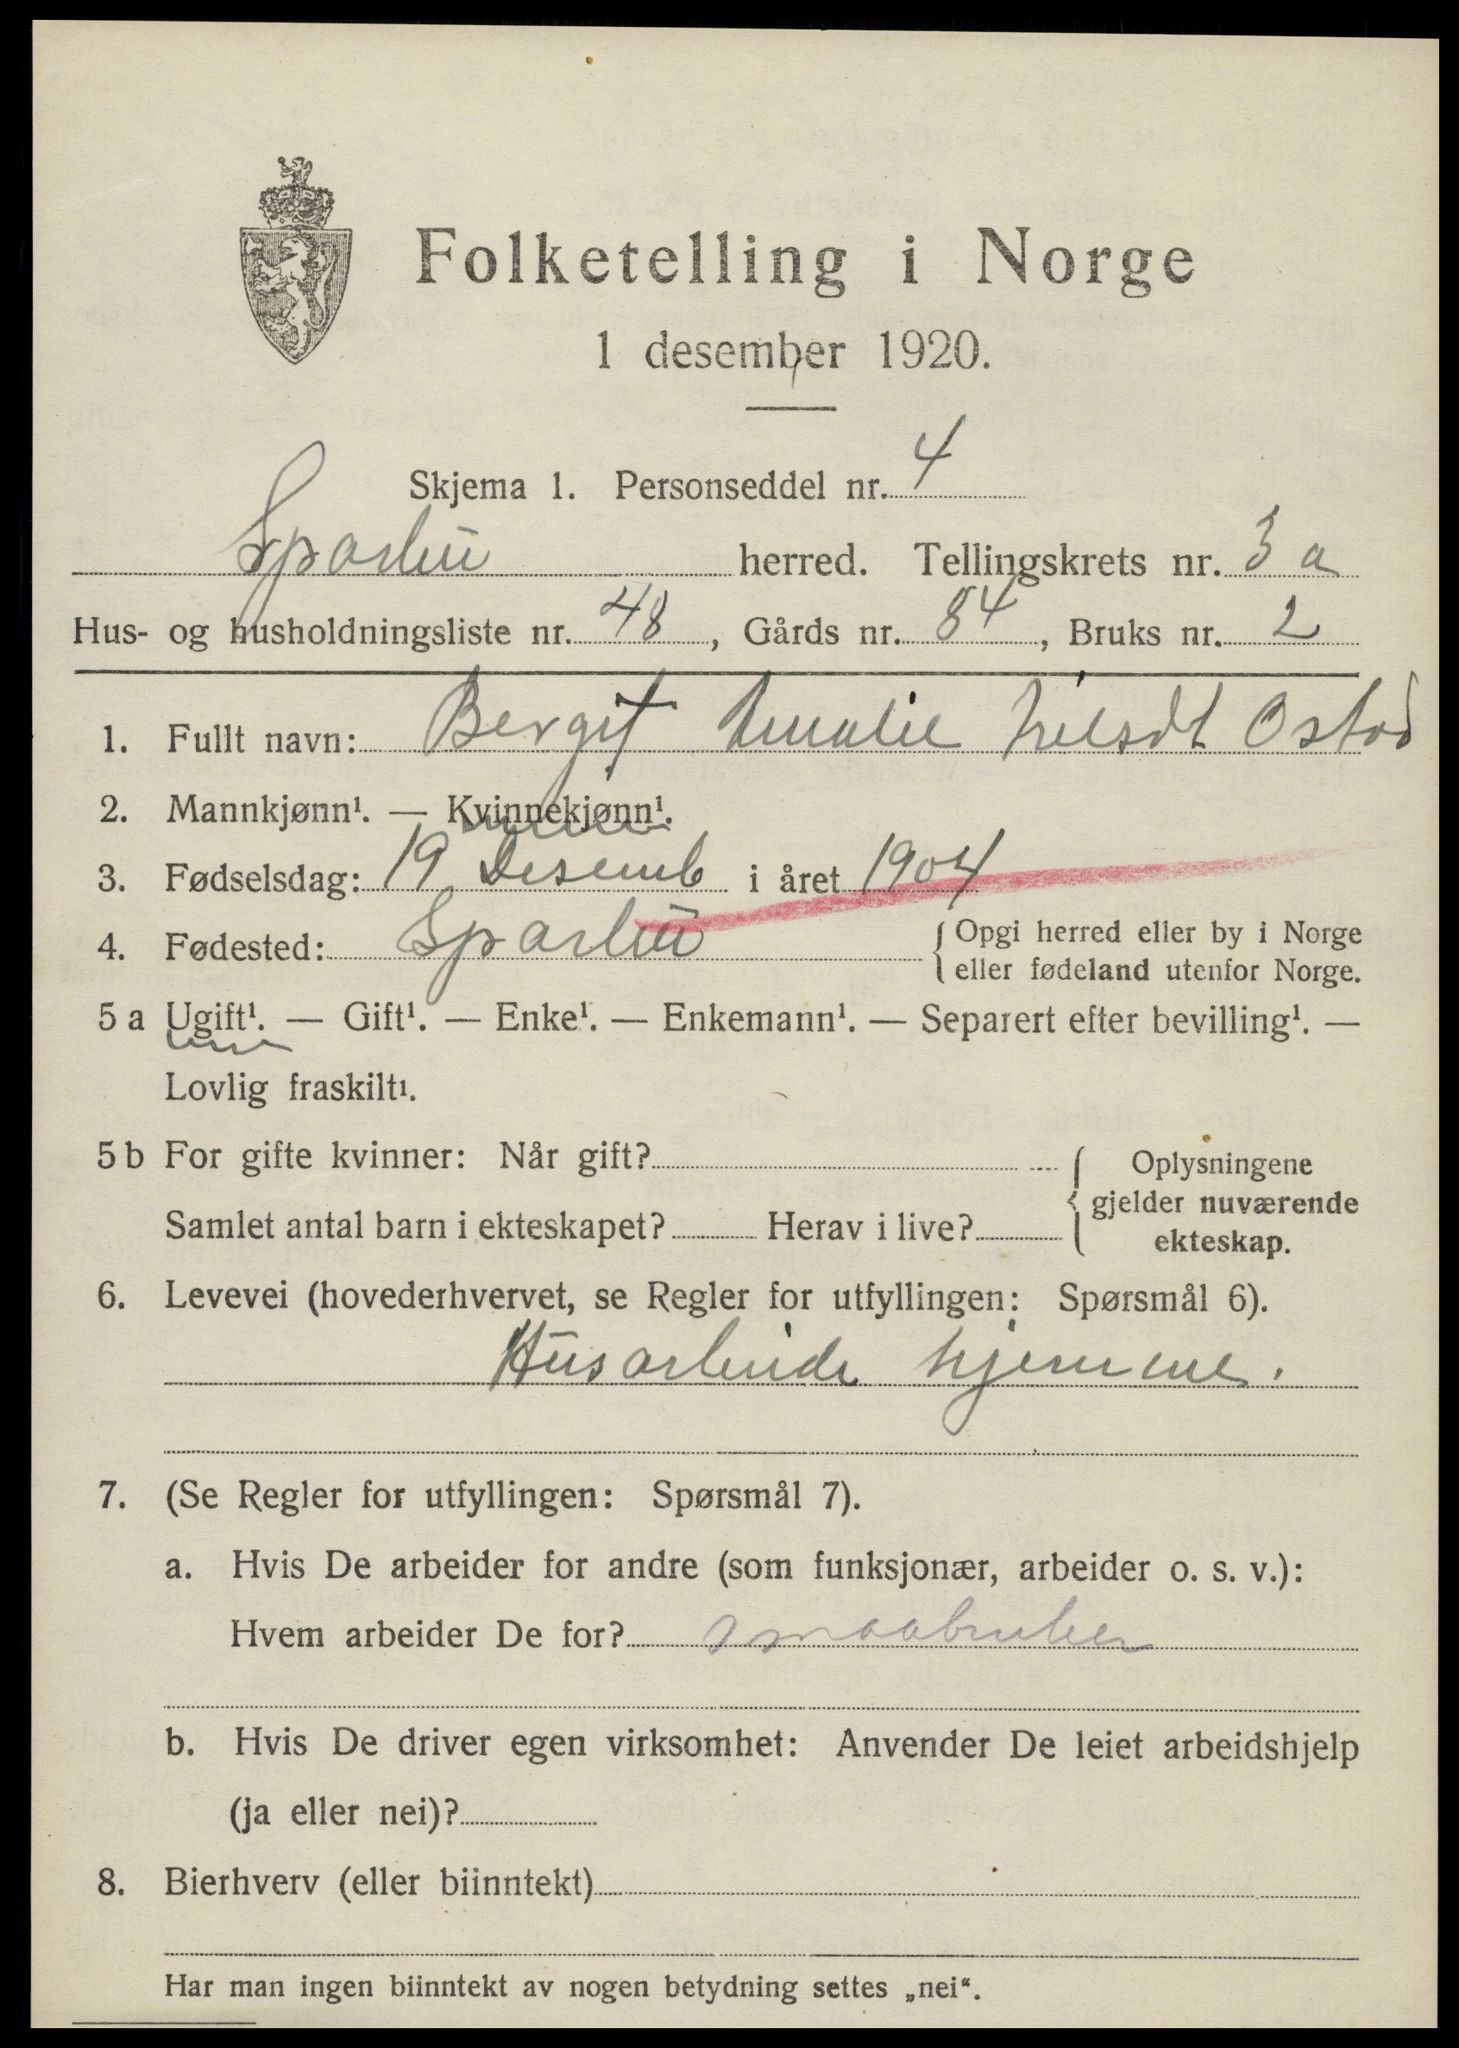 Folketelling i Norge
1 desember 1920.
Skjema 1. Personseddel nr. 4
Sparbu herred. Tellingskrets nr. 3 a
Hus- og husholdningsliste nr. 48, Gårds nr. 84, Bruks nr. 2
1. Fullt navn: Bergit Amalie Østad
2. Mannkjønn¹. — Kvinnekjønn¹.
3. Fødselsdag: 19 Desemb i året 1904
4. Fødested: Sparbu { Opgi herred eller by i Norge
eller fødeland utenfor Norge.
5 a Ugift¹. — Gift¹. — Enke¹. — Enkemann¹. — Separert efter bevilling¹. —
Lovlig fraskilt¹.
5 b For gifte kvinner: Når gift?
Samlet antal barn i ekteskapet? Herav i live?
{ Oplysningene
gjelder nuværende
ekteskap.
6. Levevei (hovederhvervet, se Regler for utfyllingen: Spørsmål 6).
Husarbeide hjemme.
7. (Se Regler for utfyllingen: Spørsmål 7).
a. Hvis De arbeider for andre (som funksjonær, arbeider o. s. v.):
Hvem arbeider De for? smaabruker
b. Hvis De driver egen virksomhet: Anvender De leiet arbeidshjelp
(ja eller nei)?
8. Bierhverv (eller biinntekt)
Har man ingen biinntekt av nogen betydning settes „nei“.